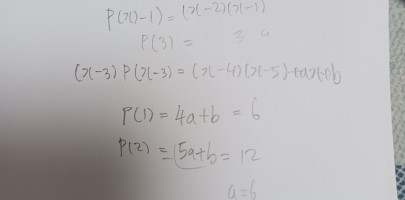 P(x)-1)=(x-2)(x-1)
P(3)= 3 a
(x-3)P(x-3)=(x-4)(x-5)+ax+b
P(1)=4a+b=6
P(2)=5a+b=12
a=6